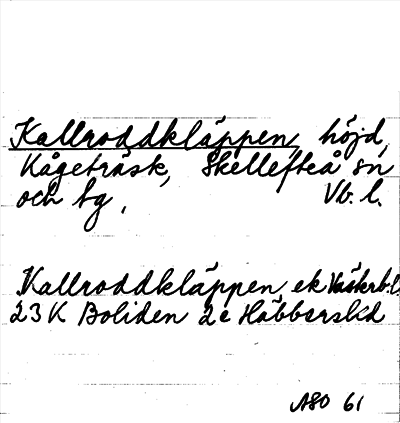 Kallroddkläppen, höjd,
Kågeträsk, Skellefteå sn
och tg, Vb. l.
Kallroddkläppen ek Västerb.l.
23K Boliden 2e Häbbersl:d
ASO 61